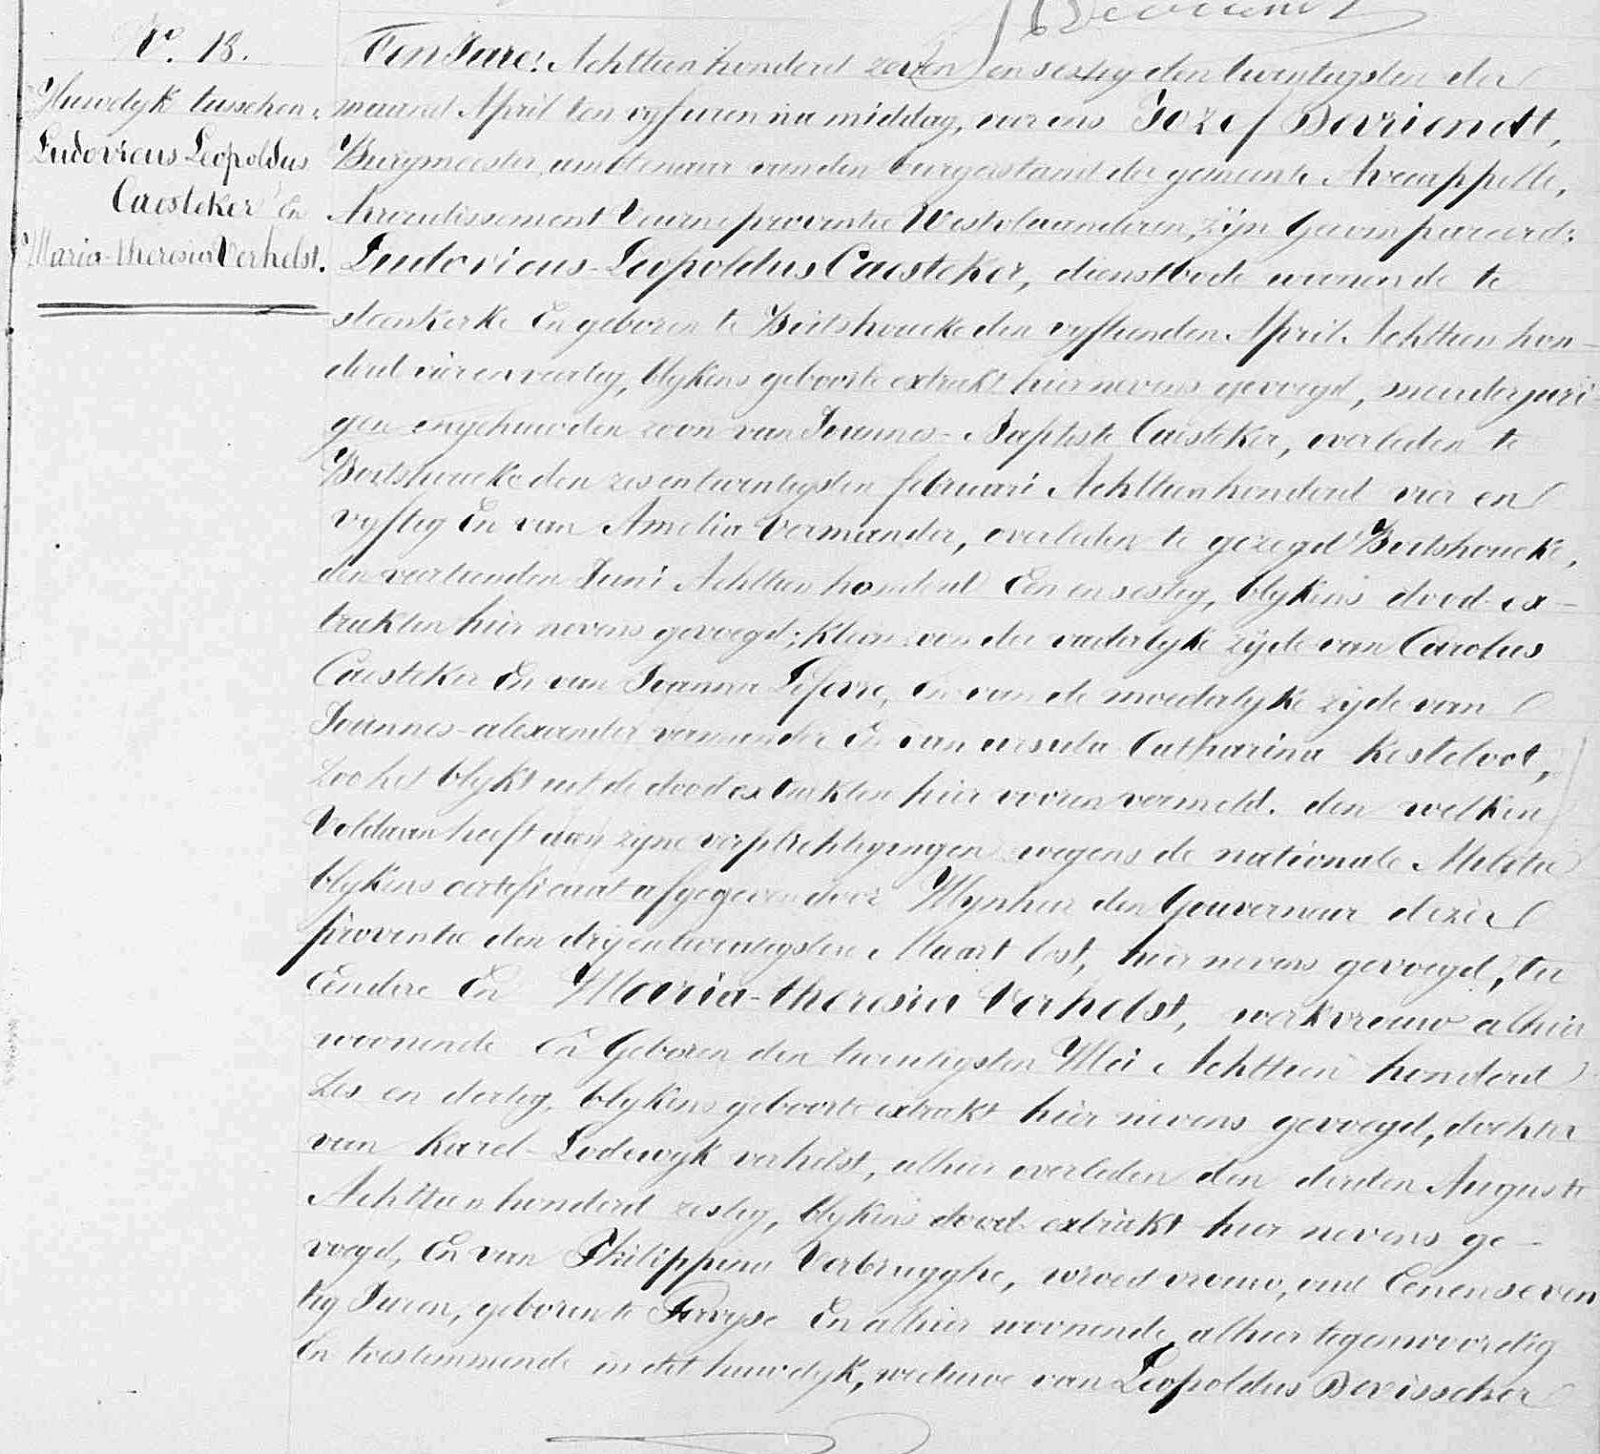 N.º 13.
Huwelyk tusschen
Ludovicus Leopoldus
Caesteker en
Maria-theresia Verhelst.
Ten Jare: Achttien honderd zeven en sestig den twintigsten der
maand April ten vyf uren na middag, voor ons Jozef Devriendt,
Burgmeester, ambtenaar van den burgerstand der gemeente Avecappelle,
Arrondissement Veurne provintie Westvlaanderen, zijn Gecompareerd:
Ludovicus-Leopoldus Caesteker, dienstbode woonende te
steenkerke En geboren te Beitshoucke den vyftienden April Achttien hon-
derd vier en veertig, blykens geboorte extrakt hier nevens gevoegd, meerderjari-
gen ongehuwden zoon van Joannes-Baptiste Caesteker, overleden te
Beitshoucke den zes en twintigsten februari Achttien honderd vier en
vyftig En van Amelia Vermander, overleden te gezegd Beitshoucke,
den veertienden Juni Achttien honderd Een en sestig, blykens dood-ex-
trakten hier nevens gevoegd; klein van der vaderlyke zijde van Carolus
Caesteker En van Joanna Lefevre, En van de moederlyke zijde van
Joannes-alexander vermander En van ursula Catharina Kesteloot,
zoo het blykt uit de dood extrakten hier voren vermeld. den welken
Voldaan heeft aan zyne verplichtigingen wegens de nationale Militie
blykens certificaat afgegeven door Mynheer den Gouverneur dezer
provintie den dry en twintigsten Maart lest, hier nevens gevoegd, ter
Eendere En Maria-theresia Verhelst, werkvrouw alhier
woonende En Geboren den twintigsten Mei Achttien honderd
Zes en dertig, blykens geboorte extrakt hier nevens gevoegd, dochter
van Karel-Lodewyk verhelst, alhier overleden den derden Auguste
Achttien honderd zestig, blykens dood-extrakt hier nevens ge-
voegd, En van Philippina Verbrugghe, vrouw, oud Een en seven
tig Jaren, geboren te En alhier woonende, alhier tegenwoordig
En toestemmende in dit huwelyk, weduwe van Leopoldus Devisscher